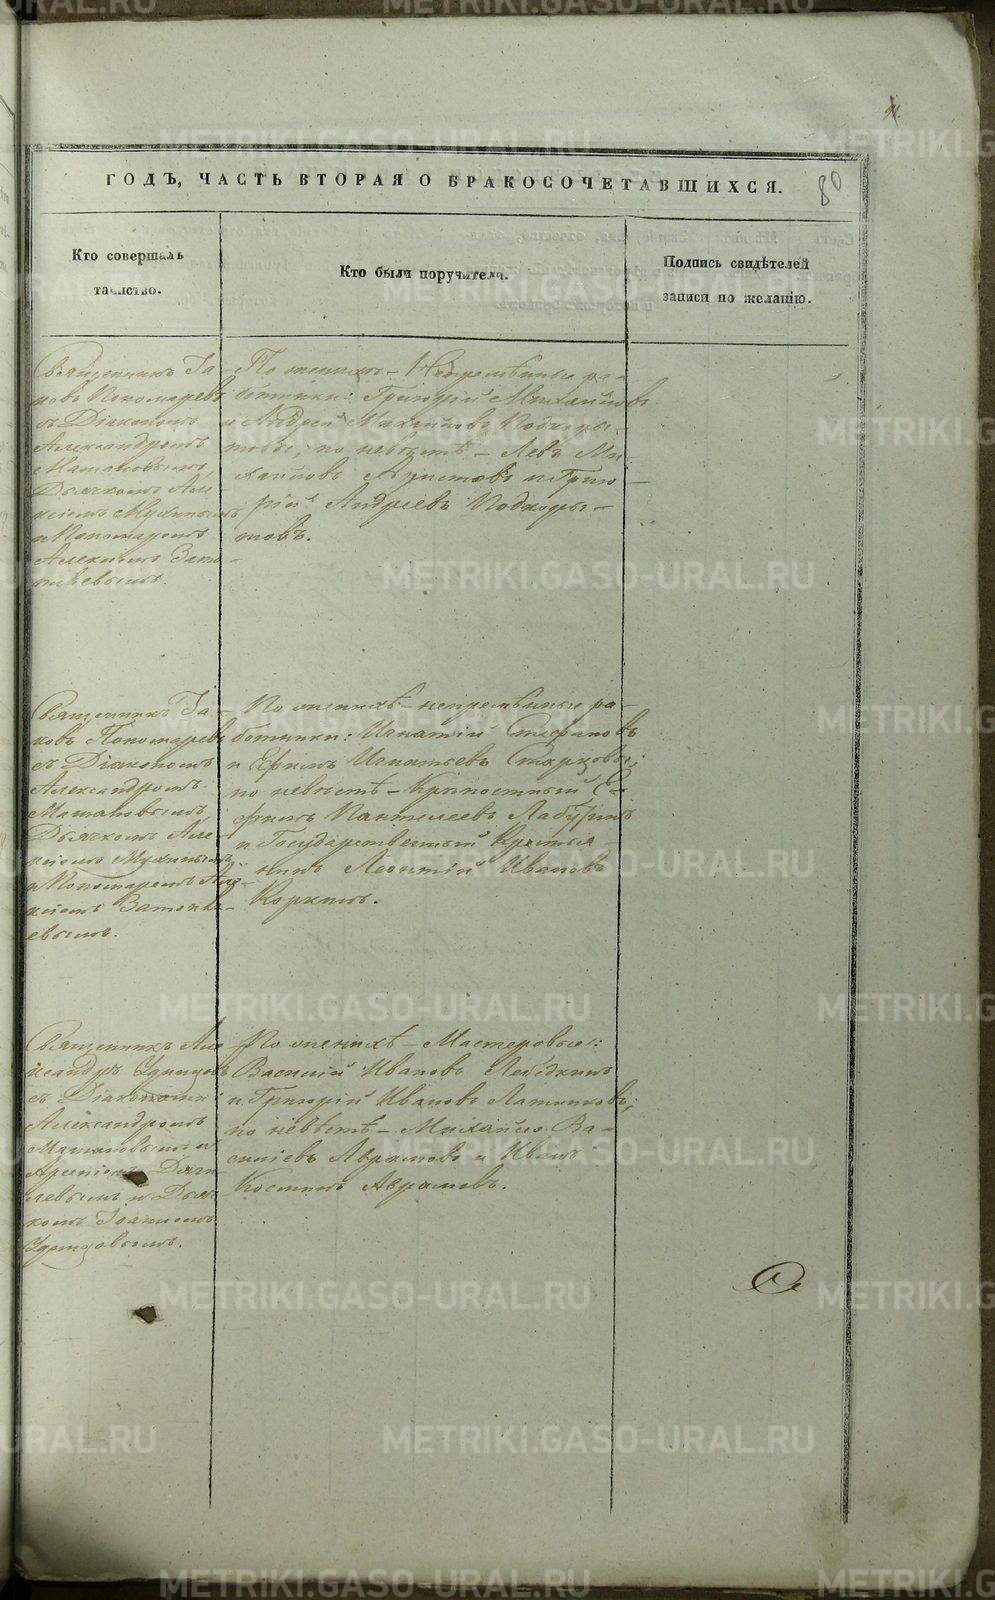 91.
ГОДЪ, ЧАСТЬ ВТОРАЯ О БРАКОСОЧЕТАВШИХСЯ.
80
Кто совершалъ
таинство.
Кто были поручители.
Подпись свидѣтелей
записи по желанію.
Священникъ Іа-
ковъ Пономаревъ
съ Діакономъ
Александромъ
Матановымъ,
Дьячкомъ Але-
ксіемъ Мухинымъ
и Пономаремъ
Алексіемъ
По женихѣ – Непремѣнные ра-
ботники: Григорій Михайловъ
и Андрей Михайловъ Подкоры-
товы; по невѣстѣ – Левъ Ми-
хайловъ и Григо-
рій Андреевъ Подкоры-
товъ.
Священникъ Іа-
ковъ Пономаревъ
съ Діакономъ
Александромъ
Матановымъ,
Дьячкомъ Але-
ксіемъ Мухинымъ
и Пономаремъ Але-
ксіемъ
По женихѣ – непремѣнные ра-
ботники: Игнатій Стефановъ
и Ефимъ Игнатьевъ Старковы;
по невѣстѣ – Крѣпостный Е-
фимъ Пантелеевъ
и Государственный Крестья-
нинъ Леонтій Ивановъ
Коркинъ.
Священникъ Але-
ксандръ Удинцевъ
съ Діаконами
Александромъ
Матановымъ и
Арсеніемъ
и Дьяч-
комъ Іоанномъ
Удинцовымъ.
По женихѣ – Мастеровые:
Василій Ивановъ Лебедкинъ
и Григорій Ивановъ Латниковъ;
по невѣстѣ – Михайло Ва-
сильевъ Аврамовъ и Иванъ
Косминъ Аврамовъ.
METRIKI.GASO-URAL.RU